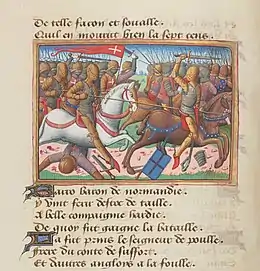 De telle facon et foualle.
Quil en mourut bien la sept cens.
baron de normandie.
y vint ferir de de taille
A belle compaignie hardie.
De quoy fut gaigne la bataille.
La fut prins le seigneur de poulle.
frere du conte de suffort.
Et dautres anglois a la foulle.